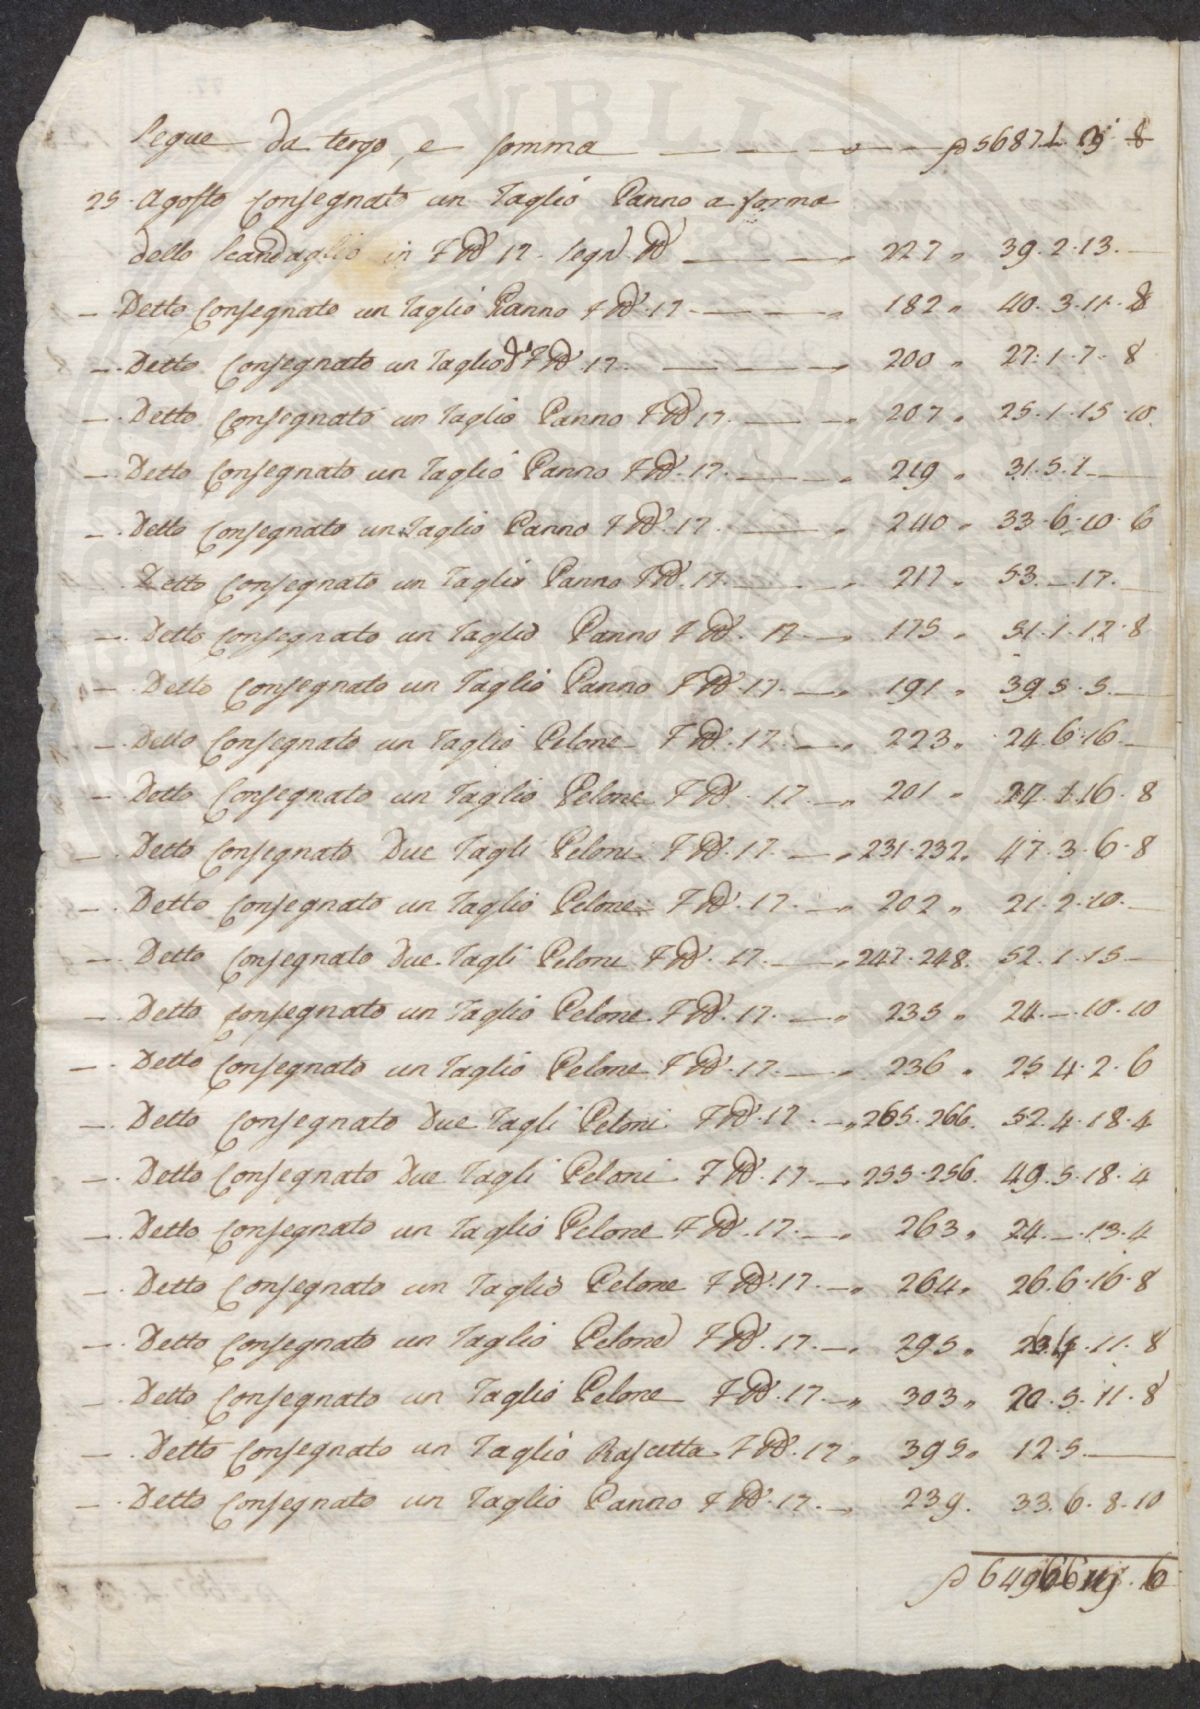 Segue da tergo, e somma — — — p 5687.1. 3. 8
25. Agosto Consegnato un Taglio Panno a forma
dello Scandaglio in F Nº 17. Segn. Nº — — „ 227 „ 39. 2. 13. —
— Detto Consegnato un Taglio Panno F Nº. 17 — — „ 182 „ 40. 3. 11. 8
— Detto Consegnato un Taglio dº F Nº 17. — — „ 200 „ 27. 1. 7. 8
— Detto Consegnato un Taglio Panno F Nº 17. — „ 207 „ 25. 1. 15. 10.
— Detto Consegnato un Taglio Panno F Nº. 17. — „ 219 „ 31. 5. 1 —
— Detto Consegnato un Taglio Panno F Nº. 17. — „ 240 „ 33. 6. 10. 6
Detto Consegnato un Taglio Panno F Nº. 17. — „ 217 „ 53. —. 17. —
— Detto Consegnato un Taglio Panno F Nº. 17. — „ 175 „ 51. 1. 12. 8
— Detto Consegnato un Taglio Panno F Nº. 17. — „ 191 „ 39. 5. 5. —
— Detto Consegnato un Taglio Pelone F Nº. 17. — „ 223 „ 24. 6. 16 —
— Detto Consegnato un Taglio Pelone F Nº. 17. — „ 201 „ 27. 1. 16. 8
— Detto Consegnato Due Tagli Peloni F Nº. 17. — „ 231. 232 „ 47. 3. 6. 8
— Detto Consegnato un Taglio Pelone F Nº. 17. — „ 202 „ 21. 2. 10. —
— Detto Consegnato Due Tagli Peloni F Nº. 17. — „ 247. 248. 52. 1. 15 —
— Detto Consegnato un Taglio Pelone F Nº. 17. — „ 235 „ 24. —. 10. 10
— Detto Consegnato un Taglio Pelone F Nº. 17. — „ 236 „ 25. 4. 2. 6
— Detto Consegnato Due Tagli Peloni F Nº. 17 — „ 265. 266. 52. 4. 18. 4
— Detto Consegnato Due Tagli Peloni F Nº. 17 — „ 255. 256. 49. 5. 18. 4
— Detto Consegnato un Taglio Pelone F Nº. 17. — „ 263 „ 24. —. 13. 4
— Detto Consegnato un Taglio Pelone F Nº. 17. — „ 264 „ 26. 6. 16. 8
— Detto Consegnato un Taglio Pelone F Nº. 17. — „ 295 „ 11. 8
— Detto Consegnato un Taglio Pelone F Nº. 17 — „ 303 „ 20. 5. 11. 8
— Detto Consegnato un Taglio Rascetta F Nº. 17 „ 395 „ 12. 5. —
— Detto Consegnato un Taglio Panno F Nº. 17. — „ 239. 33. 6. 8. 10
p 6496 6 19. 6